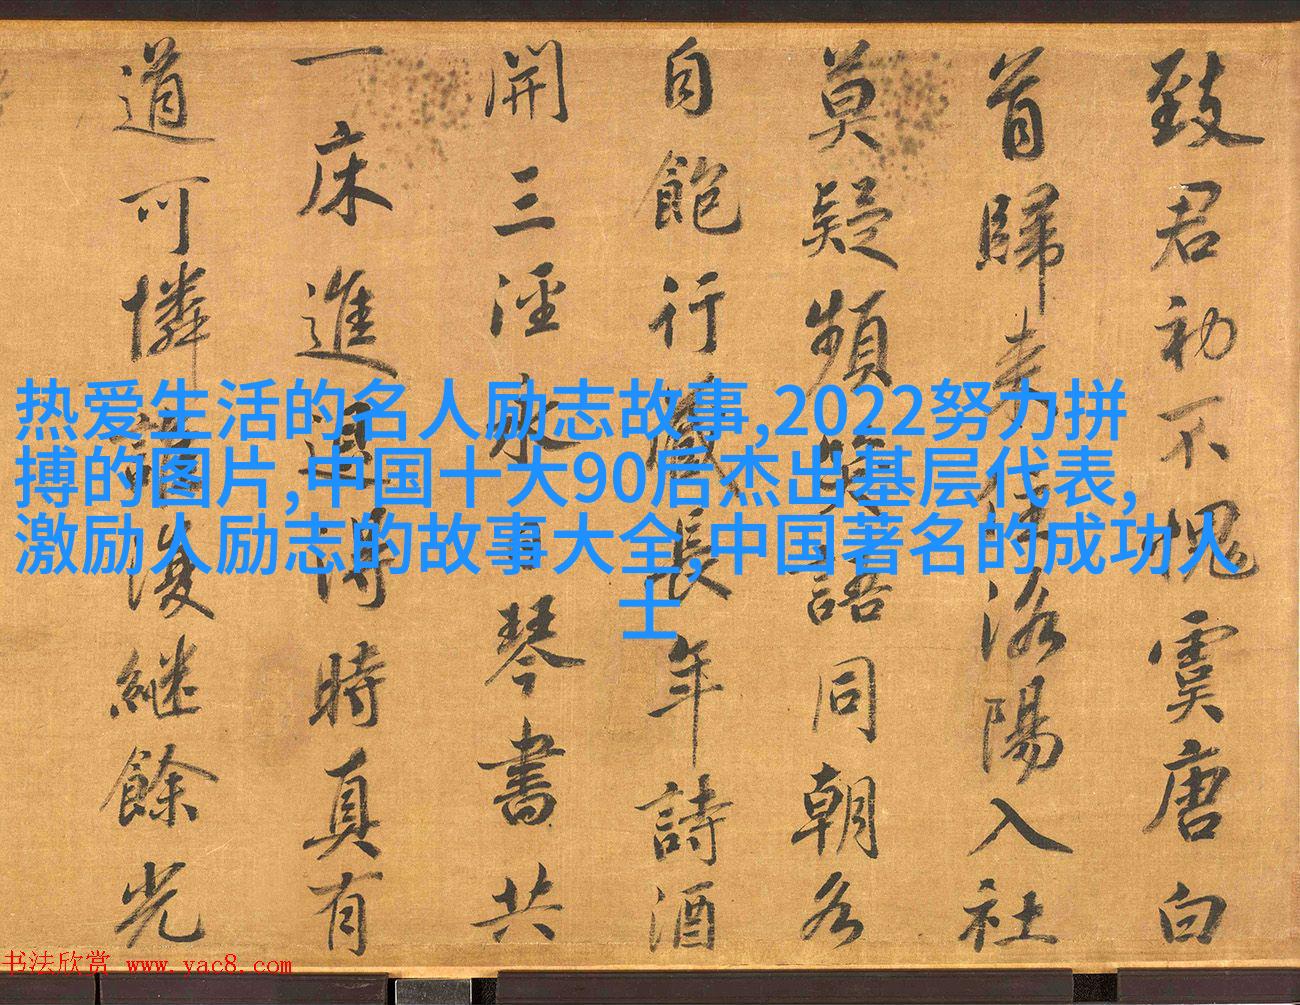 致君初不愧虞唐白
首歸来住洛陽入社
莫疑頻笑語同朝各
自飽行藏長年詩酒
開三涇琴書共
一床進退得時真有
道可憐諸後継餘光
热爱生活的名人励志故事,2022努力拼
搏的图片,中国十大90后杰出基层代表,
激励人励志的故事大全,中国著名的成功人
士
书法欣赏 www.yac8.com